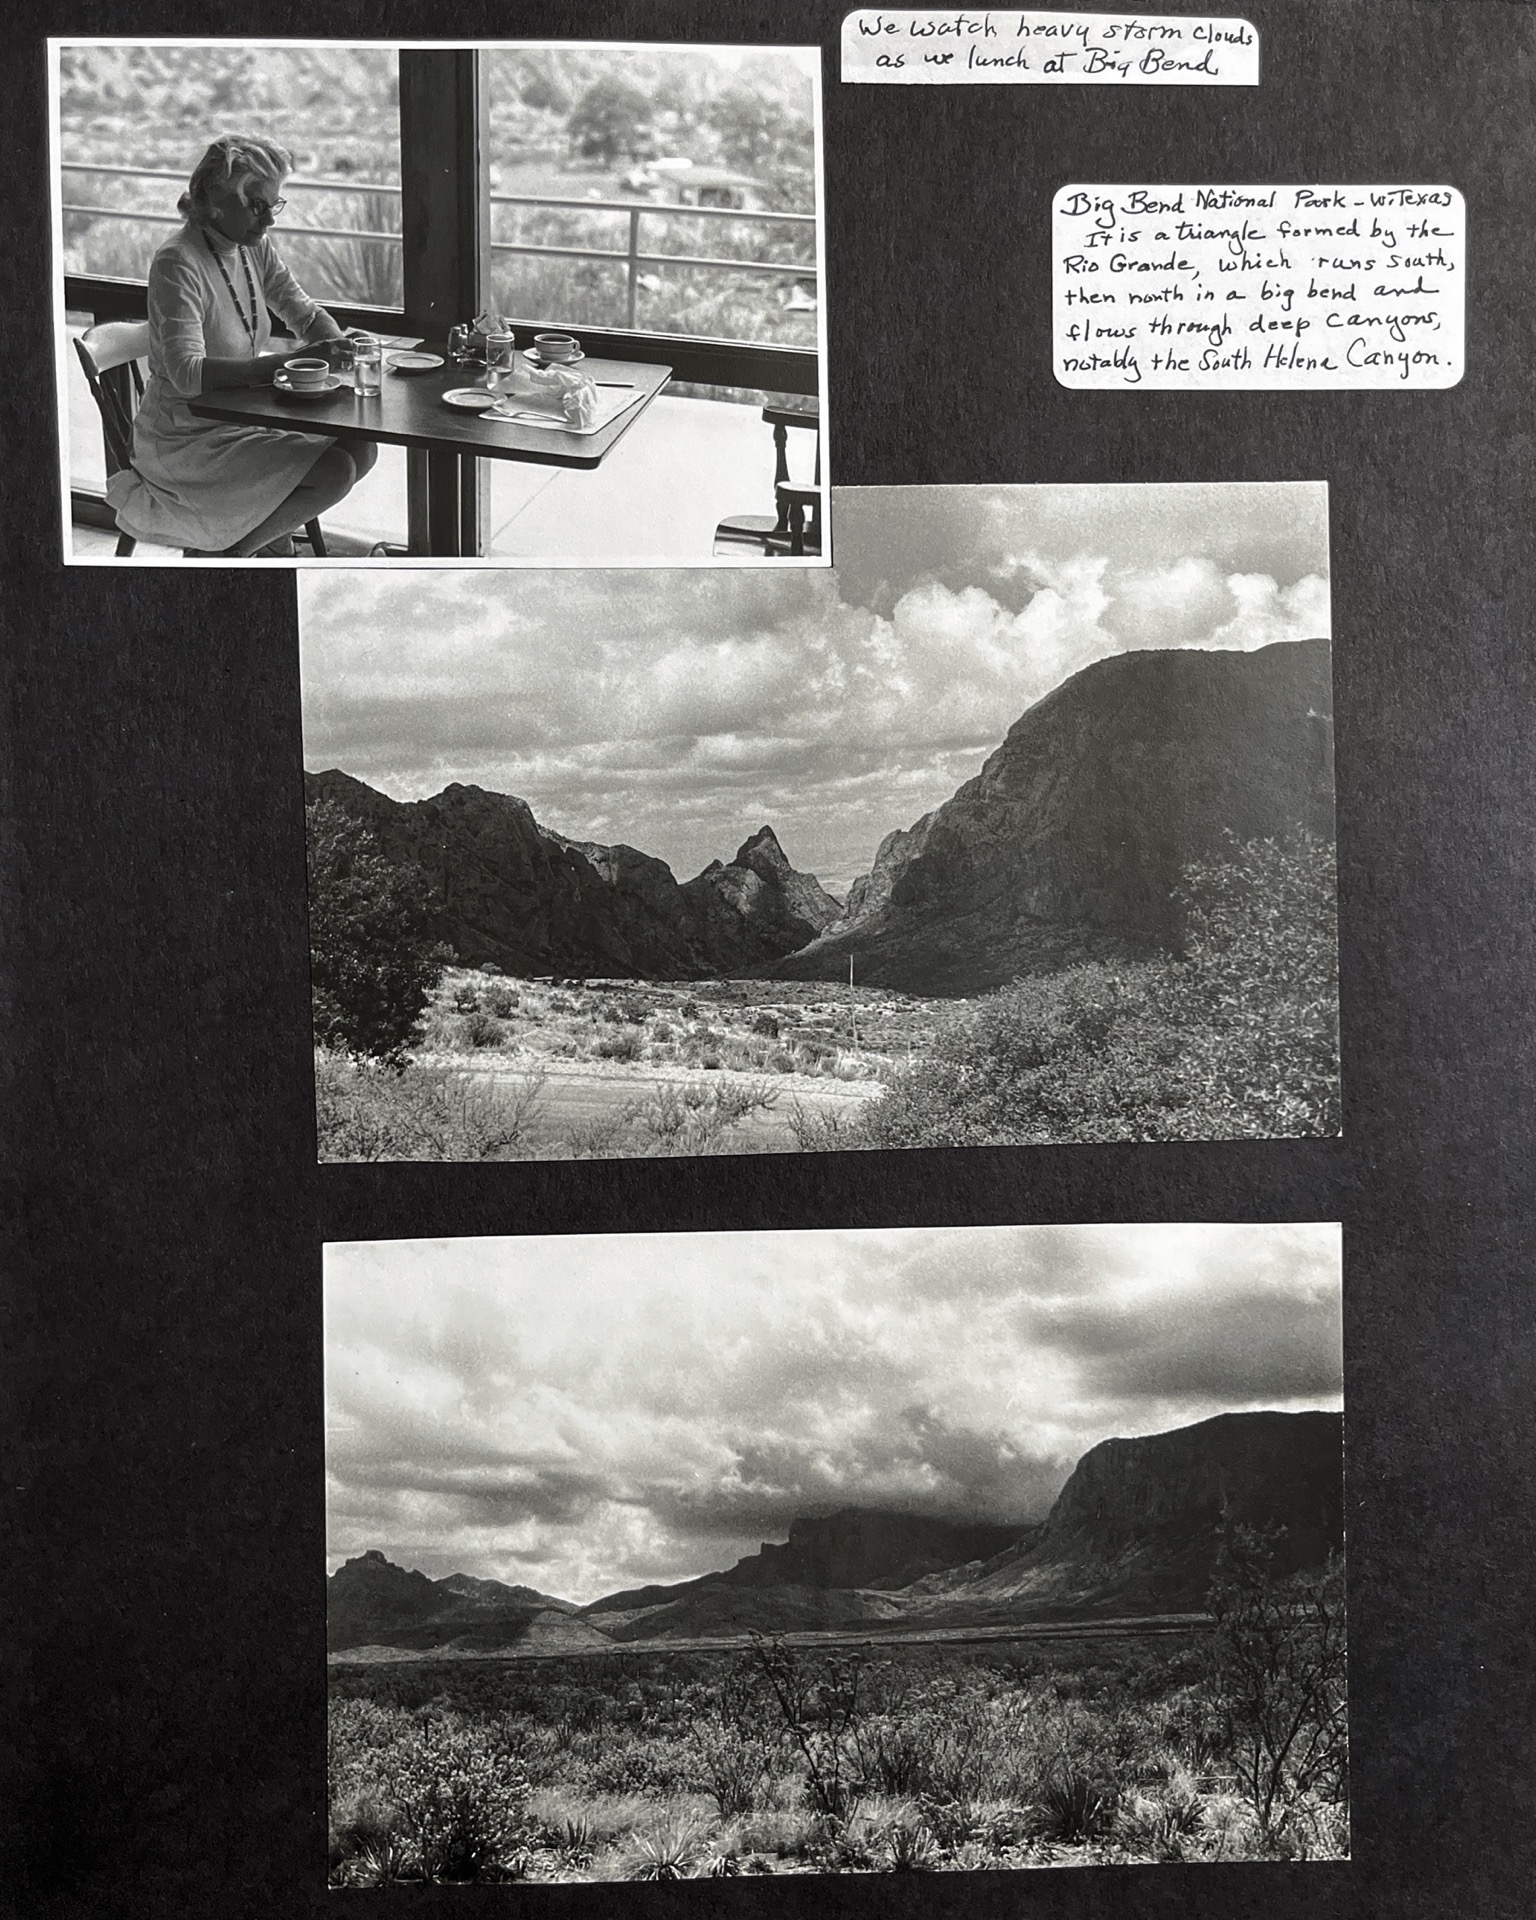 We watch heavy storm clouds
as we lunch at Big Bend
Big Bend National Park - W. Texas
It is a triangle formed by the
Rio Grande, which runs south,
then north in a big bend and
flows through deep canyons,
notably the South Helena Canyon.